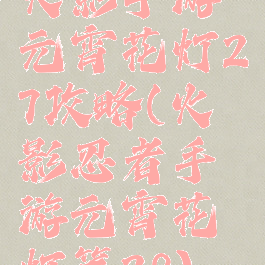 火影手游
元宵花灯2
7攻略(火
影忍者手
游元宵花
灯第28)